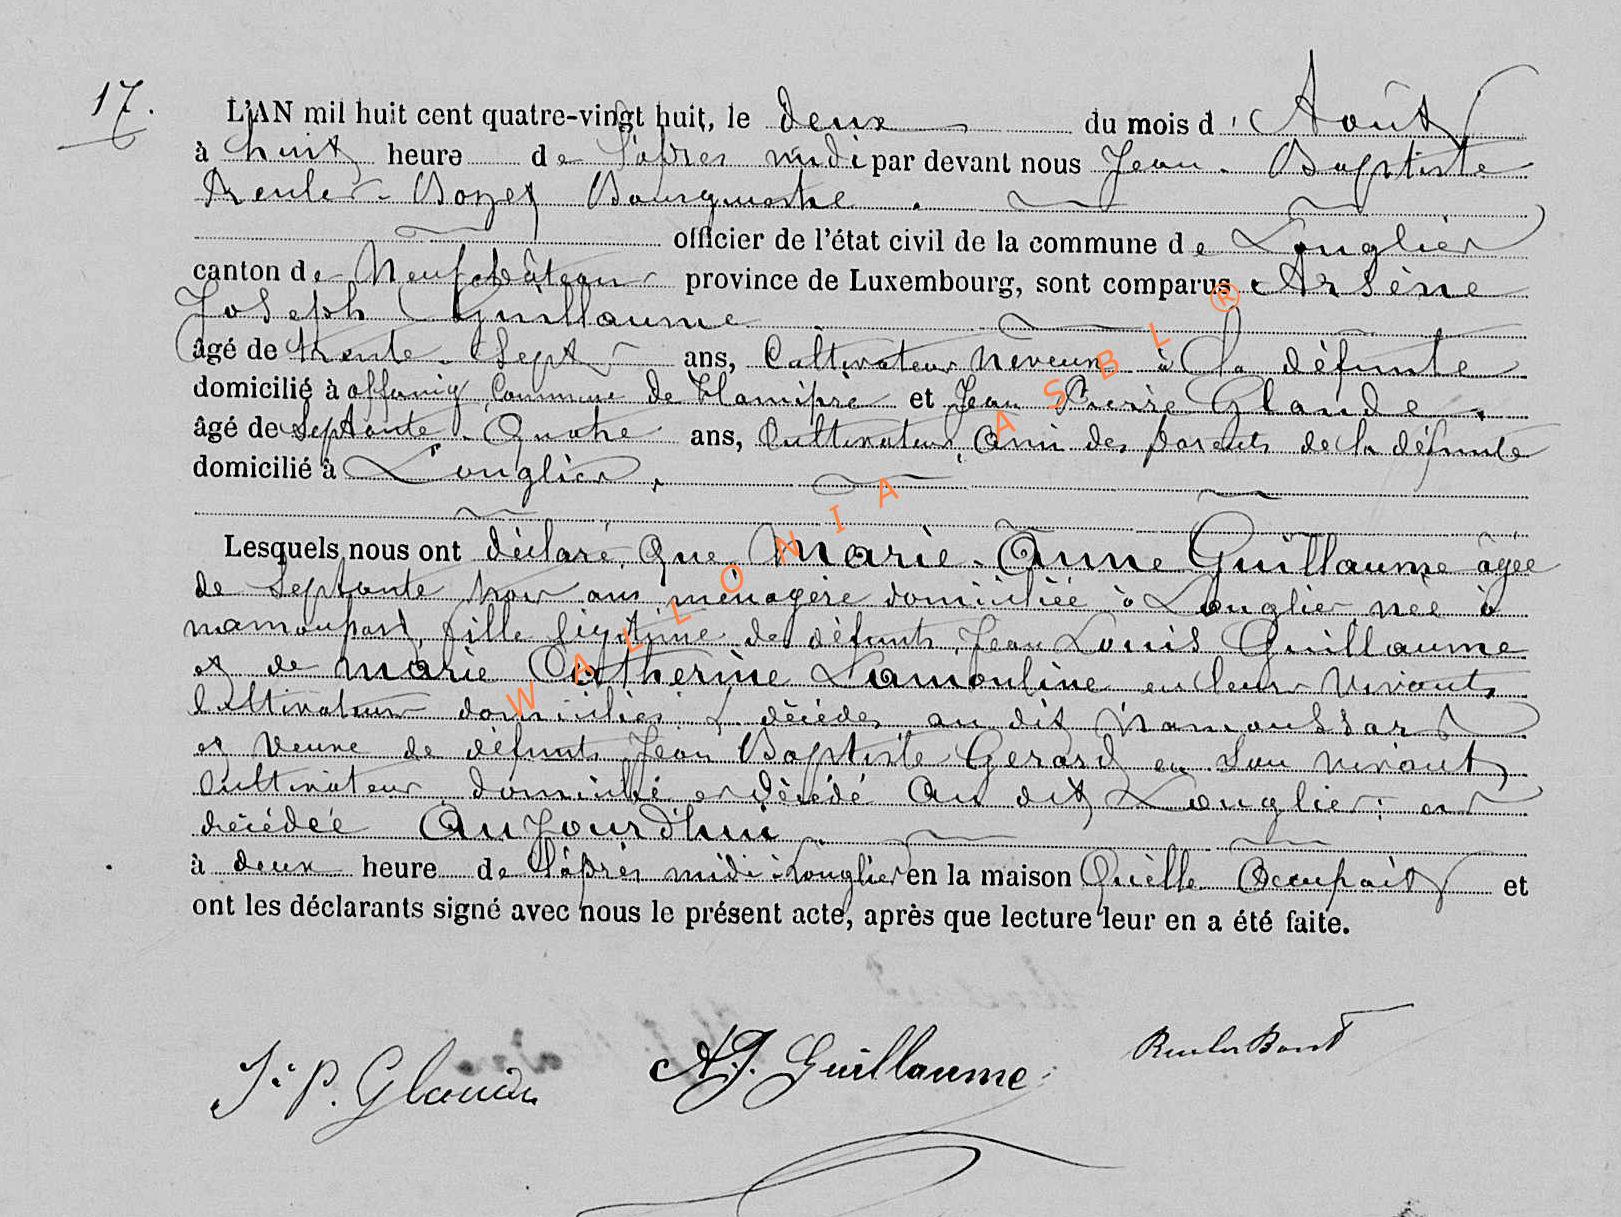 17.
L'AN mil huit cent quatre-vingt huit, le deux du mois d' Août
à huit heure de l'après midi par devant nous Jean Baptiste
Reuler-Bozet Bourgmestre.
officier de l'état civil de la commune de Longlier
canton de Neufchâteau province de Luxembourg, sont comparus Arsène
Joseph Guillaume
âgé de trente-sept ans, Cultivateur Neveux à la défunte
domicilié à offaing Commune de Hamipré et Jean Pierre Glaude,
âgé de Septante-Quatre ans, Cultivateur, Ami des parents de la défunte
domicilié à Longlier,
Lesquels nous ont déclaré Que Marie-Anne Guillaume âgée
de Septante trois ans ménagère domiciliée à Longlier née à
namoussart, fille légitime des défunts Jean Louis Guillaume
et de marie Catherine Lamouline en leur vivants
Cultivateur domiciliés & décédés au dit namoussart
et veuve de défunts Jean Baptiste Gerard en Son vivant
Cultivateur domicilié et décédé Au dit Longlier; est
décédée Aujourd'hui
à deux heure de l'après midi à Longlier en la maison Qu'elle Occupait et
ont les déclarants signé avec nous le présent acte, après que lecture leur en a été faite.
J. P. Glaude
A. J. Guillaume
WALLONIA ASBL ®